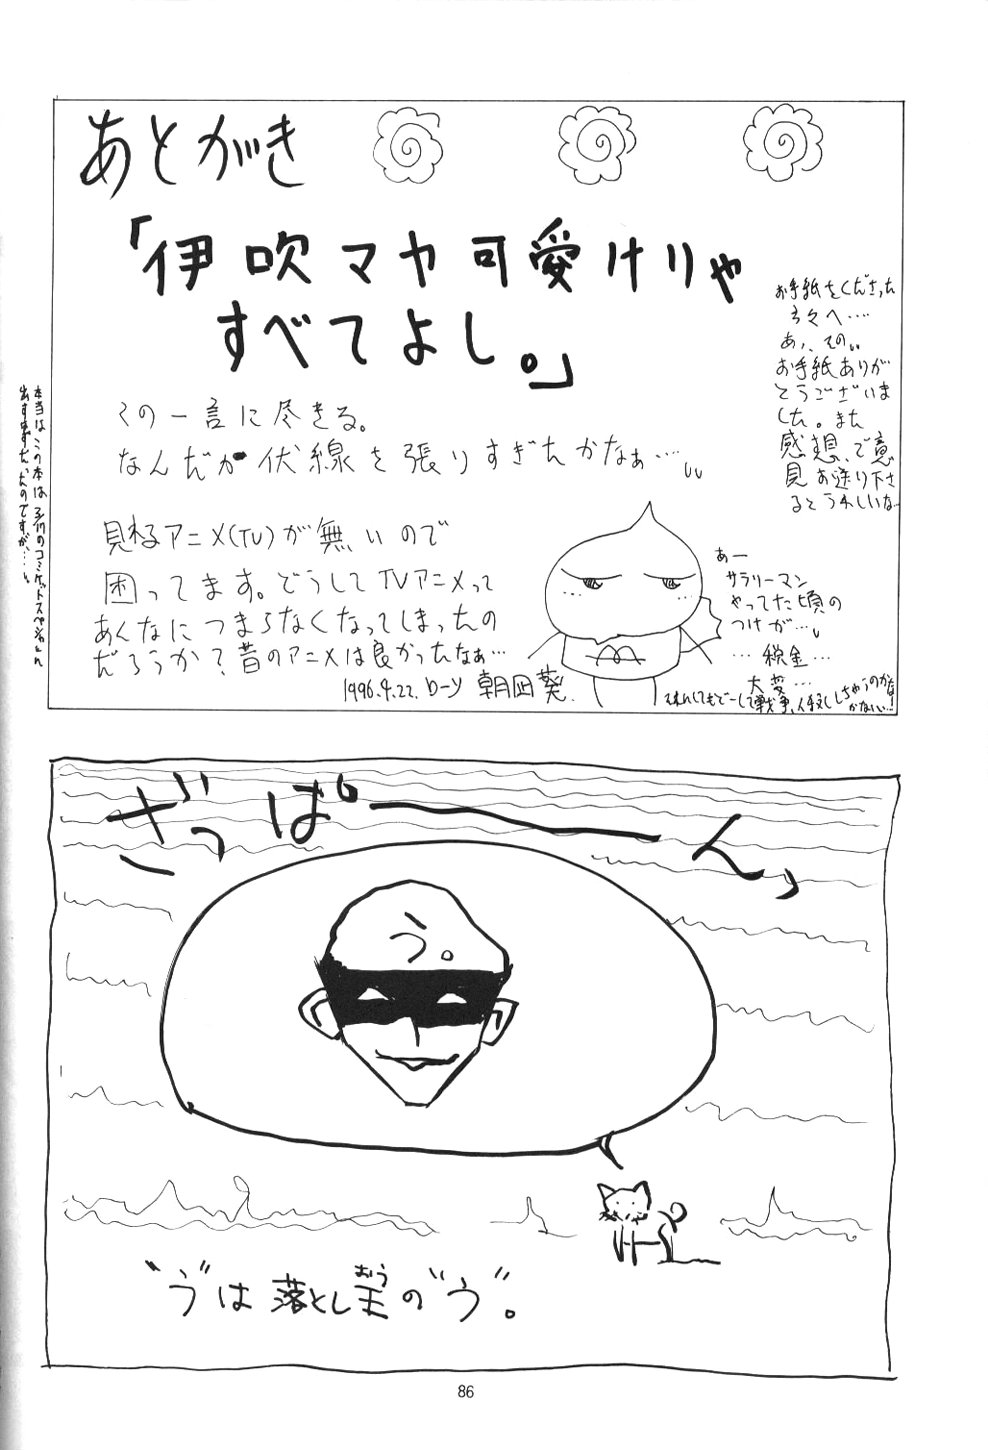 あとがき
「伊吹マヤ可愛けりゃ
すべてよし。」
この一言に尽きる。
なんだか伏線を張りすぎたかなぁ…
見れるアニメ(TV)が無いので
困ってます。どうしてTVアニメって
あんなにつまらなくなってしまったの
だろうか?昔のアニメは良かったなぁ…
1996.4.22. ローソ 朝凪葵.
お手紙をくださった
方々へ…
あ、その、
お手紙ありが
とうございま
した。また
感想、ご意
見お送り下さ
るとうれしいな…
あー
サラリーマン
やってた頃の
つけが…
…税金…
大変…
本当はこの本は
のコミケットスペシャルに
出すはずだったのですが…
ざっぱーーん
う。
"う"は落とし王(おう)の"う"。
86